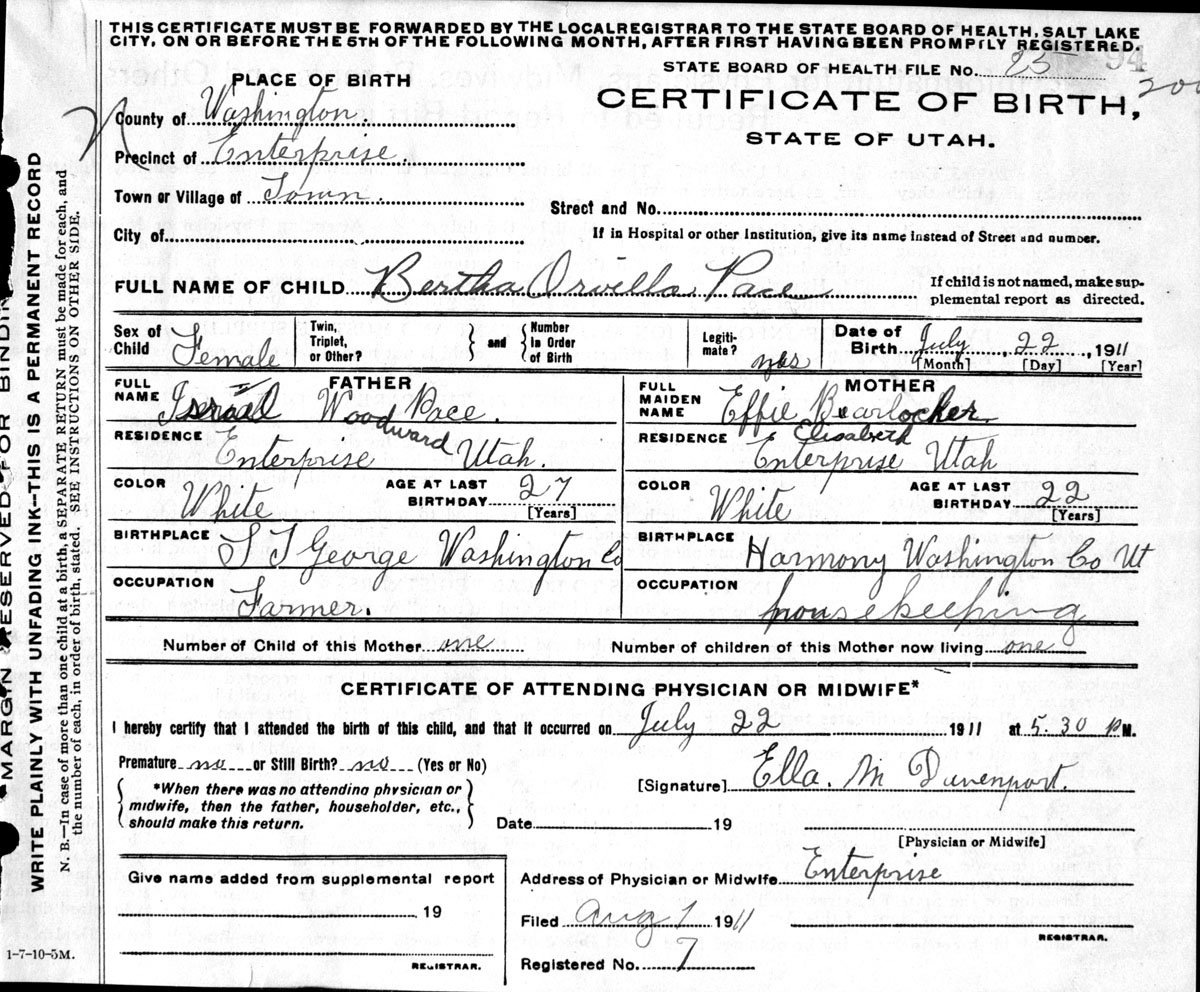 THIS CERTIFICATE MUST BE FORWARDED BY THE LOCAL REGISTRAR TO THE STATE BOARD OF HEALTH, SALT LAKE
CITY, ON OR BEFORE THE 5TH OF THE FOLLOWING MONTH, AFTER FIRST HAVING BEEN PROMPTLY REGISTERED.
STATE BOARD OF HEALTH FILE No. 25 94
200
PLACE OF BIRTH
CERTIFICATE OF BIRTH,
STATE OF UTAH.
County of Washington.
Precinct of Enterprise.
Town or Village of Town.
Street and No.
City of
If in Hospital or other Institution, give its name instead of Street and number.
FULL NAME OF CHILD Bertha Orvilla Pace
If child is not named, make sup-
plemental report as directed.
Sex of Child Female
Twin, Triplet, or Other?
and
Number in Order of Birth
Legiti-mate? yes
Date of Birth July, 22, 1911
[Month] [Day] [Year]
FATHER
FULL NAME Israel Woodward Pace.
MOTHER
FULL MAIDEN NAME Effie Elisabeth Bearlocher
RESIDENCE Enterprise Utah.
RESIDENCE Enterprise Utah
COLOR White
AGE AT LAST BIRTHDAY 27 [Years]
COLOR White
AGE AT LAST BIRTHDAY 22 [Years]
BIRTHPLACE ST George Washington Co
BIRTHPLACE Harmony Washington Co Ut
OCCUPATION Farmer.
OCCUPATION housekeeping
Number of Child of this Mother one
Number of children of this Mother now living one
CERTIFICATE OF ATTENDING PHYSICIAN OR MIDWIFE*
I hereby certify that I attended the birth of this child, and that it occurred on July 22 1911 at 5.30 P M.
Premature no or Still Birth? no (Yes or No)
[Signature] Ella. M Davenport.
*When there was no attending physician or
midwife, then the father, householder, etc.,
should make this return.
Date 19
[Physician or Midwife]
Give name added from supplemental report
19
REGISTRAR.
Address of Physician or Midwife Enterprise
Filed Aug 1 1911
REGISTRAR.
Registered No. 7
1-7-10-5M.
MARGIN RESERVED FOR BINDING
WRITE PLAINLY WITH UNFADING INK—THIS IS A PERMANENT RECORD
N. B.—In case of more than one child at a birth, a SEPARATE RETURN must be made for each, and
the number of each, in order of birth, stated. SEE INSTRUCTIONS ON OTHER SIDE.